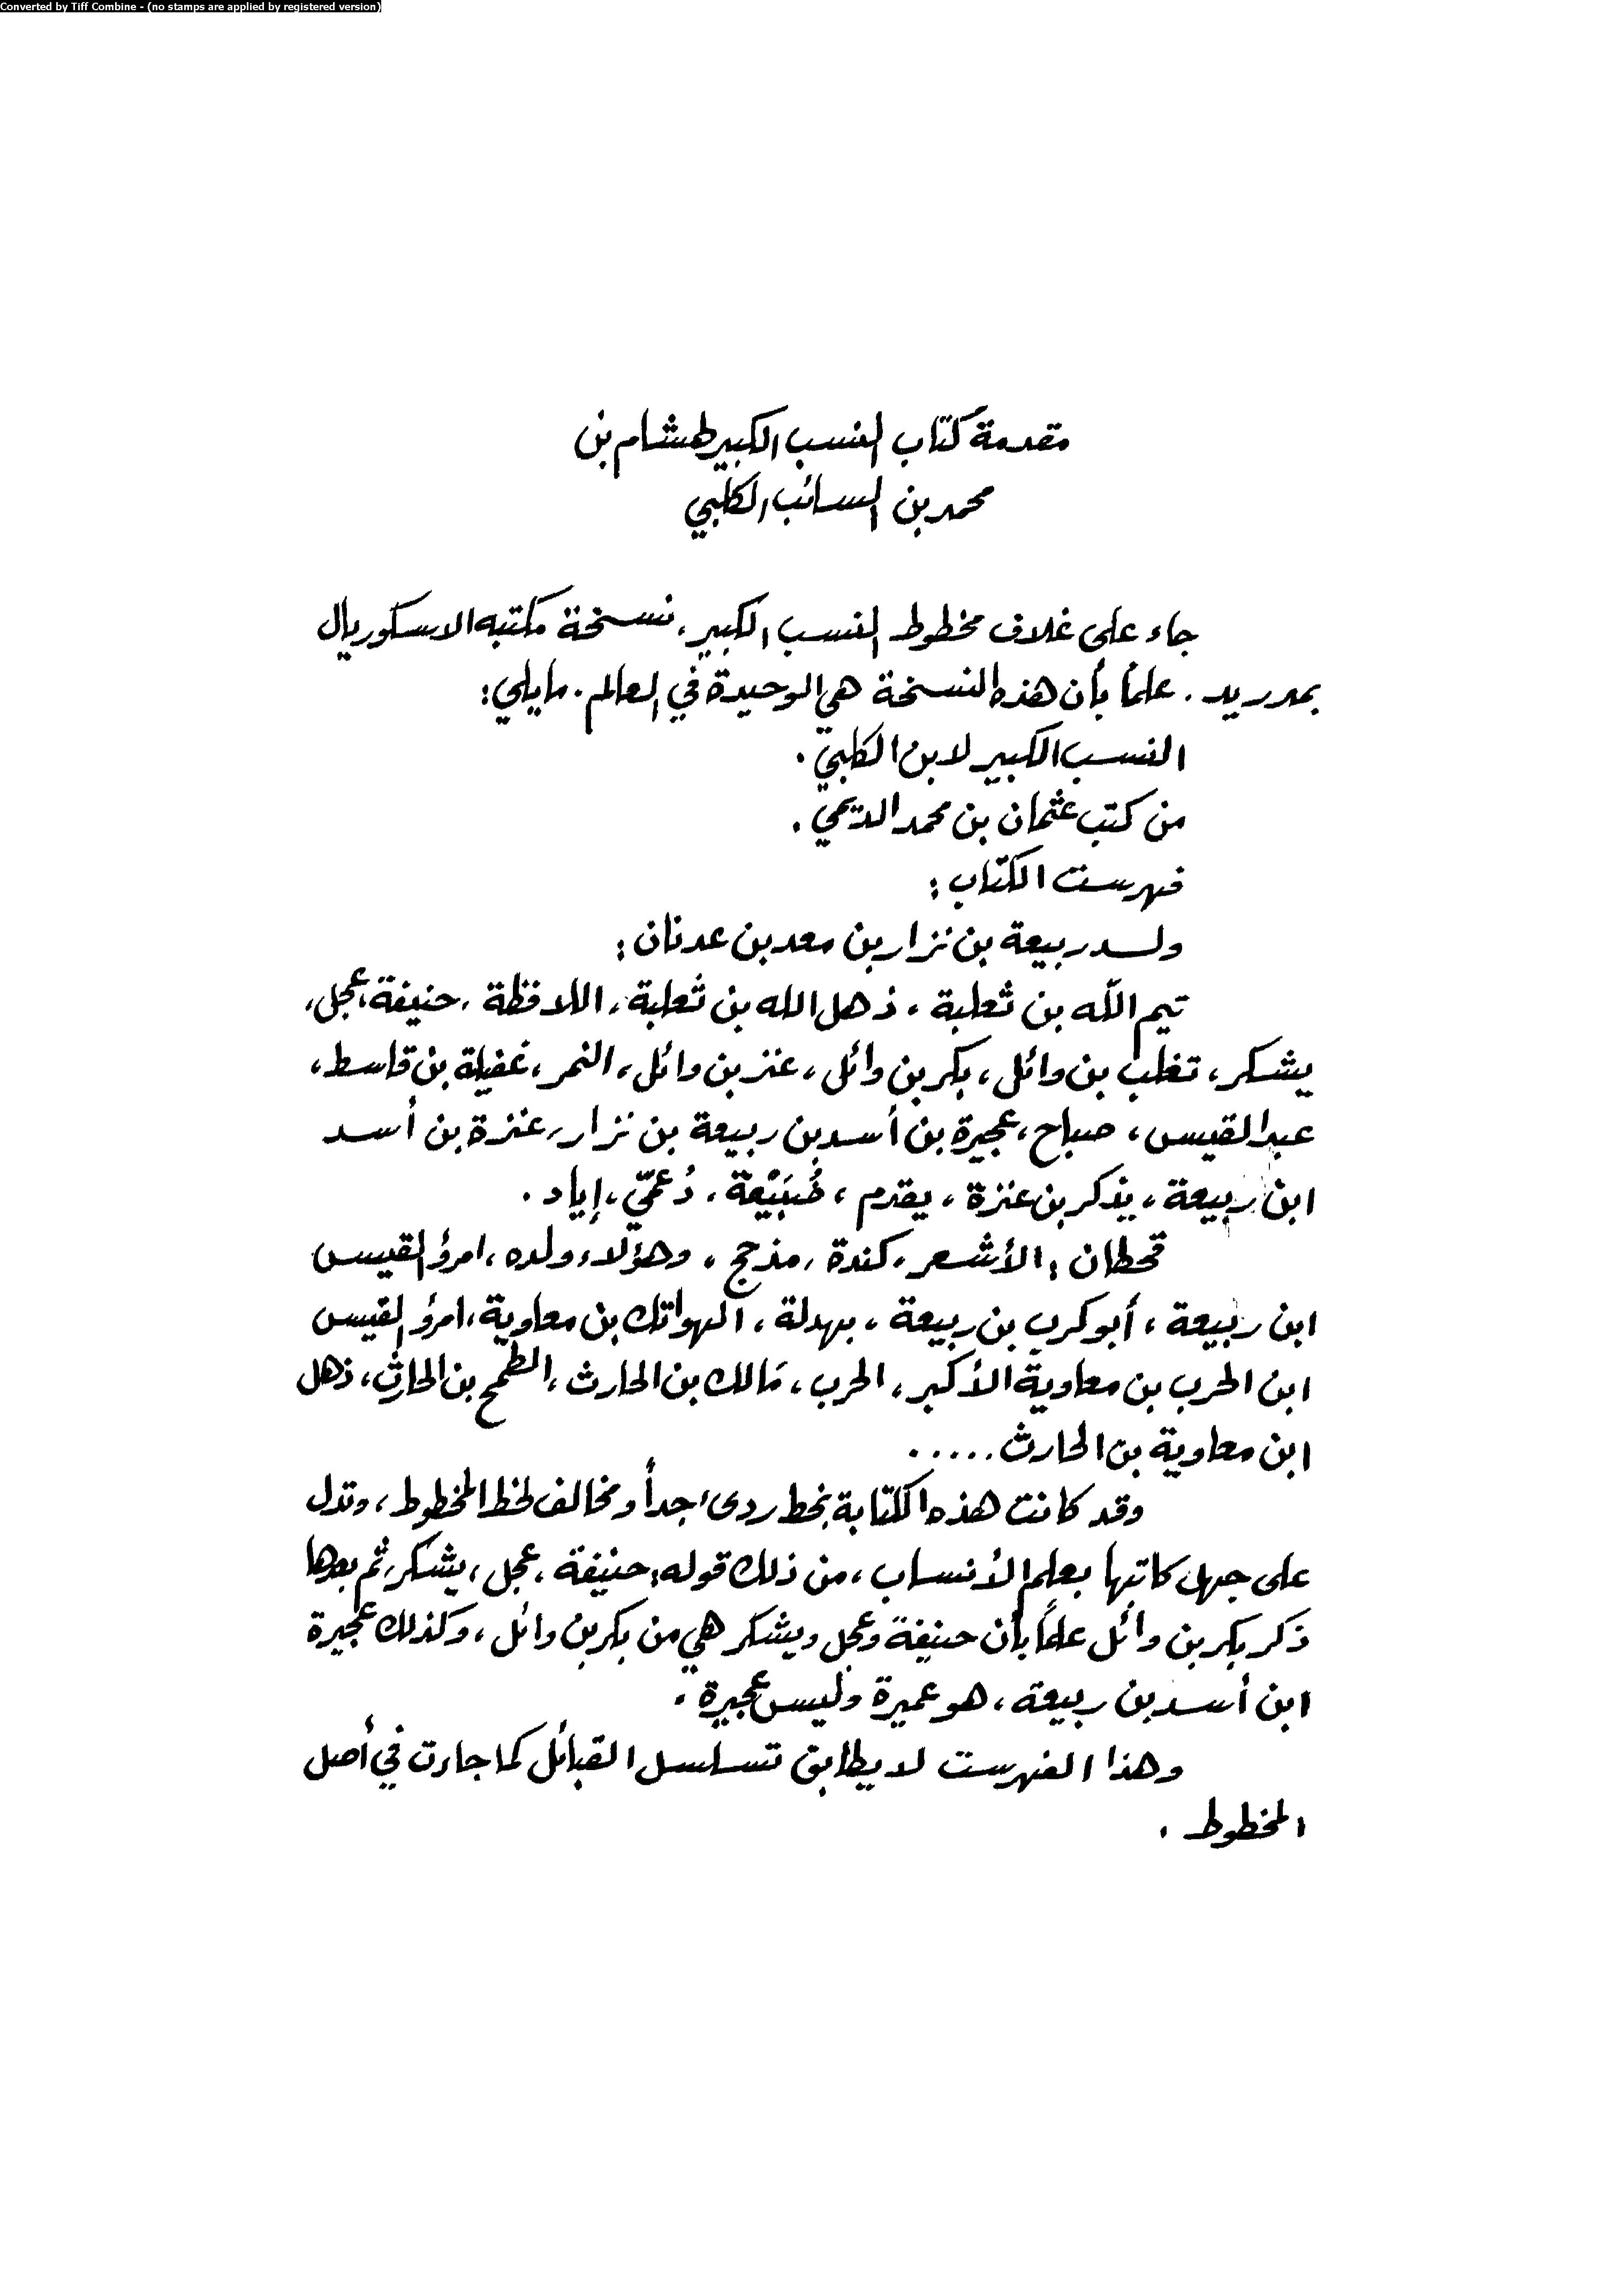 Converted by Tiff Combine - (no stamps are applied by registered version)
مقدمة كتاب النسب الكبير لهشام بن
محمد بن السائب الكلبي
جاء على غلاف مخطوط النسب الكبير، نسخة مكتبه الاسكوريال
بمدريد . علماً بأن هذه النسخة هي الوحيدة في العالم . مايلي :
النسب الكبير لابن الكلبيّ .
من كتب عثمان بن محمد الديمي .
فهرست الكتاب :
ولد ربيعة بن نزار بن معد بن عدنان :
تيم الله بن ثعلبة ، ذهل الله بن ثعلبة ، اللافظة ، حنيفة ، عجل ،
يشكر ، تغلب بن وائل ، بكر بن وائل ، عنز بن وائل ، النمر ، غفيلة بن قاسط ،
عبد القيس ، صباح ، عجيرة بن أسد بن ربيعة بن نزار ، عنزة بن أسد
ابن ربيعة ، يذكر بن عنزة ، يقدم ، ضُبَيْعة ، دُعميّ ، إياد .
قحطان : الأشعر ، كندة ، مذحج ، وهؤلاء ولده ، امرؤ القيس
ابن ربيعة ، أبو كرب بن ربيعة ، بهدلة ، الهواتك بن معاوية ، امرؤ القيس
ابن الحرب بن معاوية الأكبر ، الحرب ، مالك بن الحارث ، الطمح بن الحارث ، ذهل
ابن معاوية بن الحارث .....
وقد كانت هذه الكتابة بخط ردىء جداً ومخالف لخط المخطوط ، وتدل
على جهل كاتبها بعلم الأنساب ، من ذلك قوله : حنيفة ، عجل ، يشكر ، ثم بعدها
ذكر بكر بن وائل علماً بأن حنيفة وعجل ويشكر هي من بكر بن وائل ، وكذلك عجيرة
ابن أسد بن ربيعة ، هو عميرة وليس عجيرة .
وهذا الفهرست لا يطابق تسلسل القبائل كما جاءت في أصل
المخطوط .